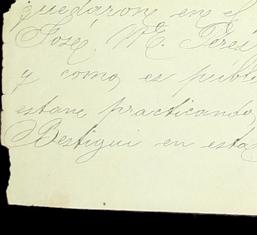 quedaron en el
José M. Pérez
y como es públi
estan practicando
Bestigui en esta